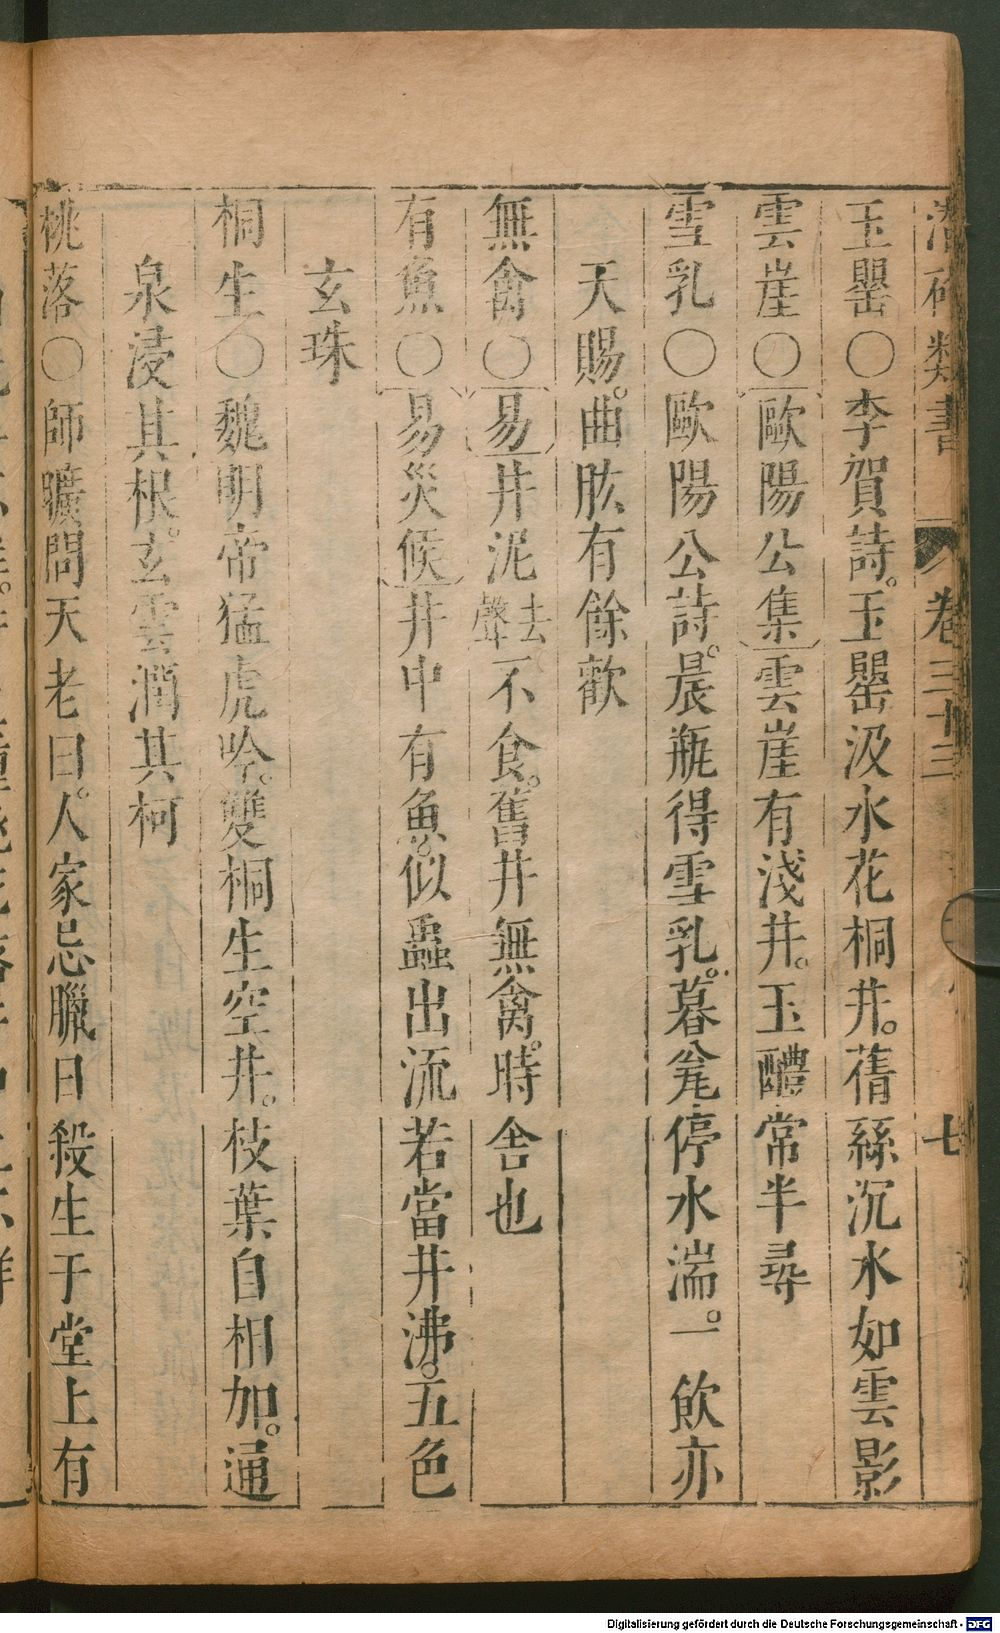 潛確類書 卷三十三 七
玉罌○李賀詩。玉罌汲水花桐井。蒨絲沉水如雲影
雲崖○歐陽公集雲崖有淺井。玉醴常半尋
雪乳○歐陽公詩。晨瓶得雪乳。暮瓮停水湍。一飲亦
天賜。曲肱有餘歡
無禽○易井泥去聲不食。舊井無禽。時舍也
有魚○易災候井中有魚。似蟲出流若當井沸。五色
玄珠
桐生○魏明帝猛虎吟。雙桐生空井。枝葉自相加。通
泉浸其根。玄雲潤其柯
桃落○師曠問天老曰。人家忌臘日殺生于堂上有
Digitalisierung gefördert durch die Deutsche Forschungsgemeinschaft - DFG